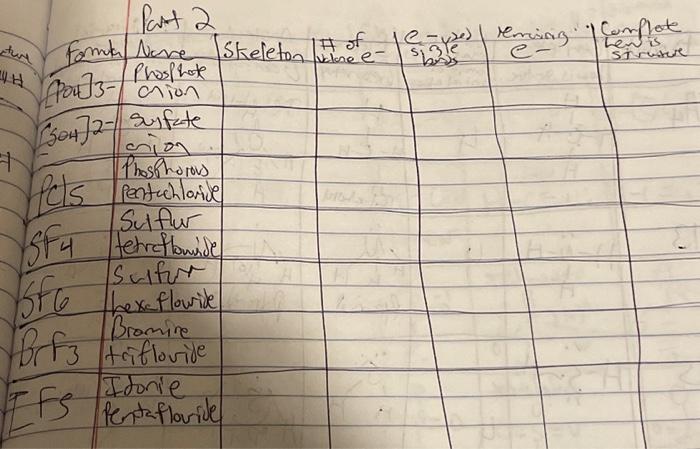 Part 2
Formula Name Skeleton # of valence e- e- used single bonds remaining e- Complete Lewis structure
[PO4]3- Phosphate
anion
[SO4]2- Sulfate
anion
PCl5 Phosphorous
Pentachloride
SF4 Sulfur
tetraflouride
SF6 Sulfur
hexaflouride
BrF3 Bromine
triflouride
IF5 Idonie
Pentaflouride